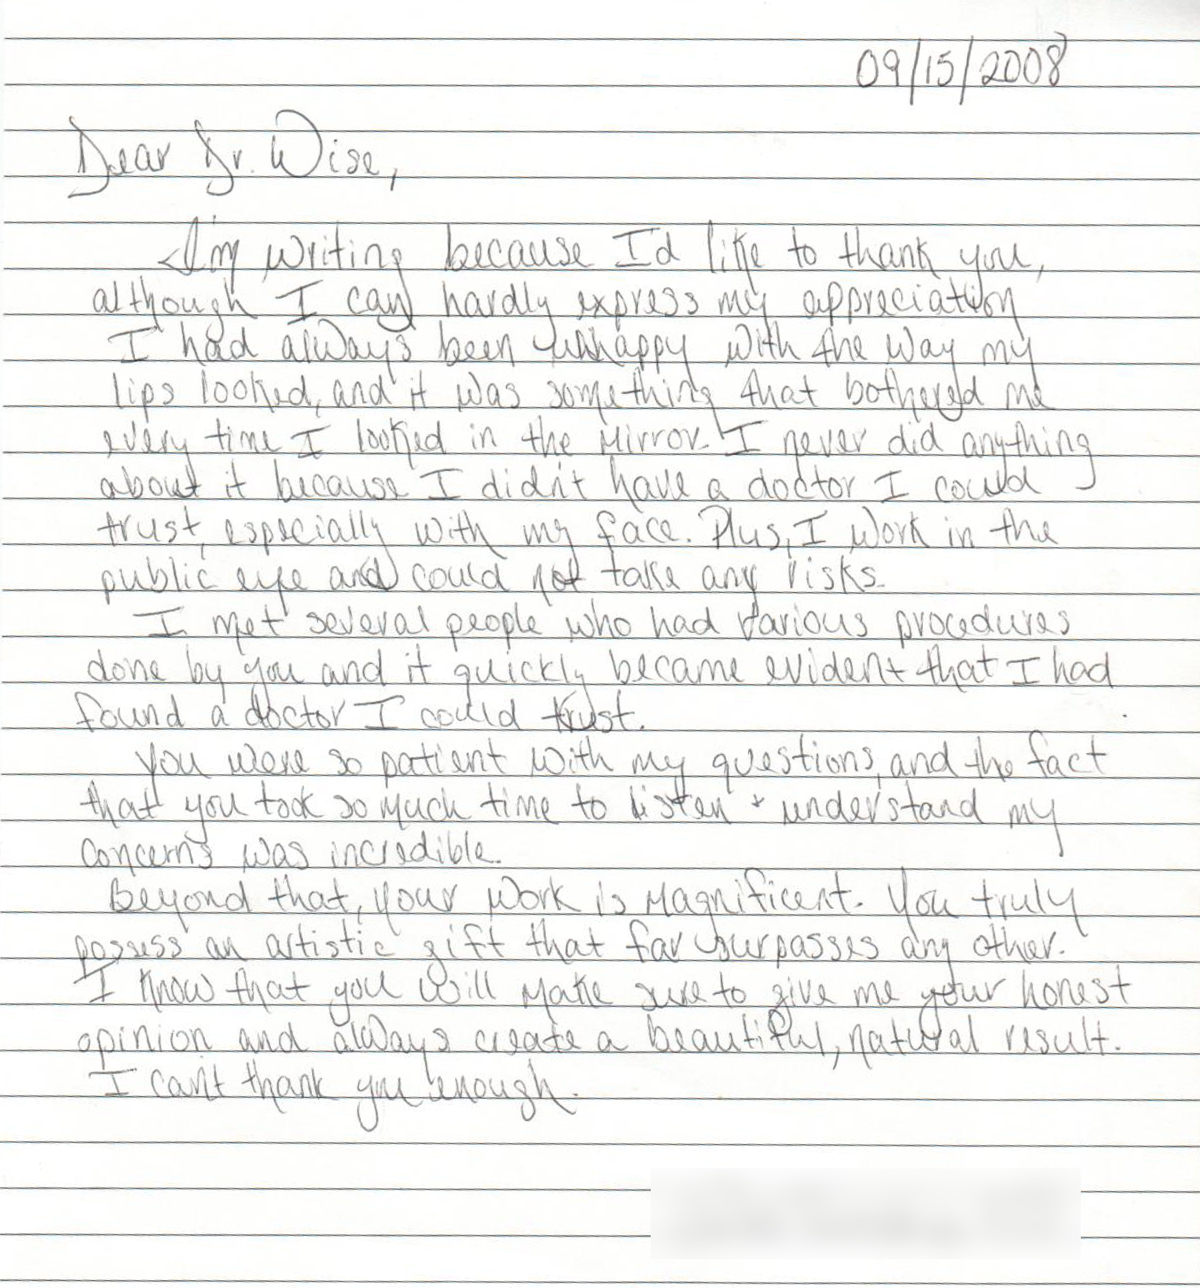 09/15/2008
Dear Dr. Wise,
I'm writing because I'd like to thank you,
although I can hardly express my appreciation
I had always been unhappy with the way my
lips looked, and it was something that bothered me
every time I looked in the mirror. I never did anything
about it because I didn't have a doctor I could
trust, especially with my face. Plus, I work in the
public eye and could not take any risks.
I met several people who had various procedures
done by you and it quickly became evident that I had
found a doctor I could trust.
You were so patient with my questions, and the fact
that you took so much time to listen + understand my
concerns was incredible.
Beyond that, your work is magnificent. You truly
possess an artistic gift that far surpasses any other.
I know that you will make sure to give me your honest
opinion and always create a beautiful, natural result.
I can't thank you enough.